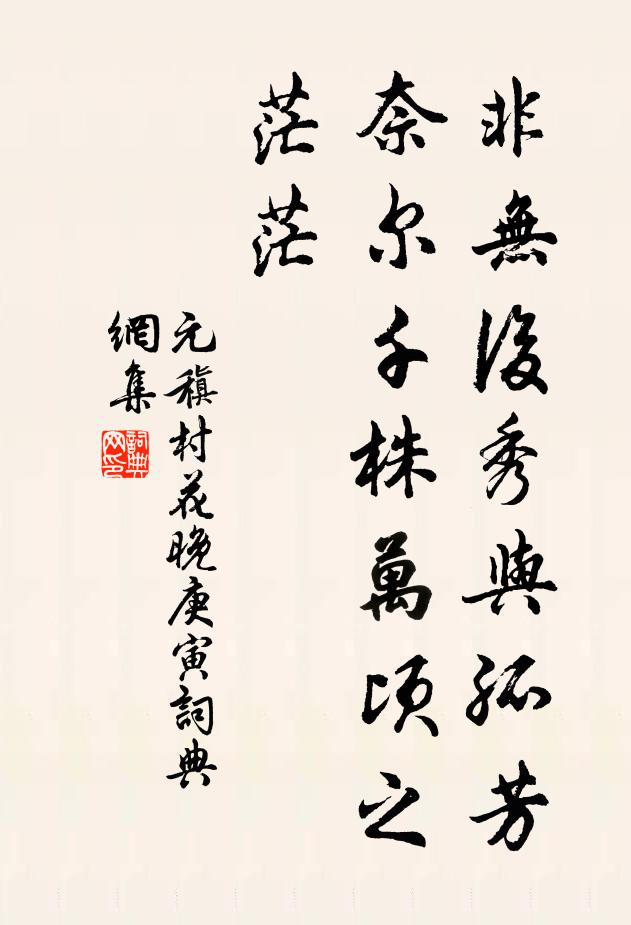 非無後秀與孤芳
奈尔千株萬頃之
茫茫
元稹村花晚庚寅詞典
網集
詞典
网印